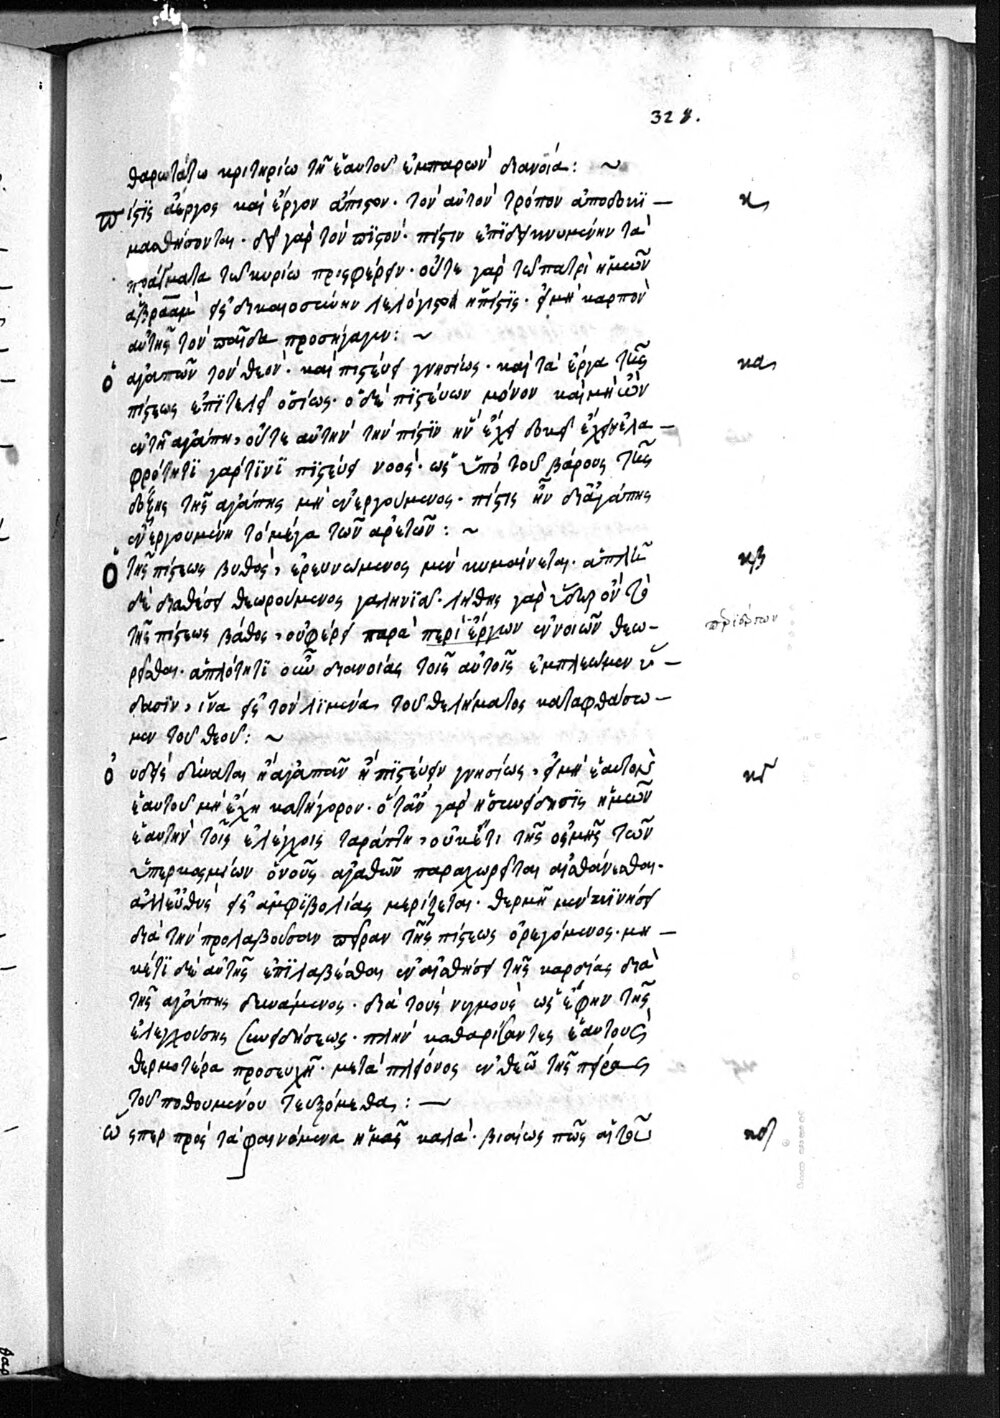 328.
θαρωτάτω κριτηρίω τῆ ἑαυτοῦ ἐμπαρὼν διανοία: ~
πίστις ἀεργὸς καὶ ἔργον ἄπιστον· τὸν αὐτὸν τρόπον ἀποδοκι — κ
μασθήσονται· δεῖ γὰρ τὸν πιστὸν· πίστιν ἐπιδεικνυμένην τὰ
πράγματα τῶ κυρίω προσφέρειν· οὔτε γὰρ τῶ πατρὶ ἡμῶν
ἀβραὰμ εἰς δικαιοσύνην ἐλογίσθη ἡ πίστις· εἰ μὴ καρπὸν
αὐτῆς τὸν παῖδα προσήγαγεν: ~
ὁ ἀγαπῶν τὸν θεὸν· καὶ πιστεύει γνησίως· καὶ τὰ ἔργα τῆς κα
πίστεως ἐπιτελεῖ ὁσίως· ὁ δὲ πιστεύων μόνον καὶ μὴ ὢν
ἐν τῆ ἀγάπη, οὔτε αὐτὴν τὴν πίστιν ἣν ἔχει δοκεῖ ἔχειν ἐλα —
φρότητι γάρ τινι πιστεύει νοὸς· ὡς ὑπὸ τοῦ βάρους τῆς
δόξης τῆς ἀγάπης μὴ ἐνεργούμενος· πίστις οὖν δι' ἀγάπης
ἐνεργουμένη τὸ μέγα τῶν ἀρετῶν: ~
ὁ τῆς πίστεως βυθὸς, ἐρευνώμενος μὲν κυμαίνεται· ἁπλῆ κβ
δὲ διαθέσει θεωρούμενος γαληνιᾶ· λήθης γὰρ ὕδωρ ὂν τὸ
τῆς πίστεως βάθος, οὐ φέρει παρὰ περιέργων ἐννοιῶν θεω—
ρεῖσθαι· ἁπλότητι οὖν διανοίας τοῖς αὐτοῖς ἐμπλέωμεν ὕ —
δασιν, ἵνα εἰς τὸν λιμένα τοῦ θελήματος καταφθάσω —
μεν τοῦ θεοῦ: ~
οὐδεὶς δύναται ἢ ἀγαπᾶν ἢ πιστεύειν γνησίως, εἰ μὴ ἑαυτὸν κγ
ἑαυτοῦ μὴ ἔχη κατήγορον· ὅταν γὰρ ἡ συνείδησις ἡμῶν
ἑαυτὴν τοῖς ἐλέγχοις ταράττη, οὐκέτι τῆς ὀσμῆς τῶν
ὑπερκοσμίων ὁ νοῦς ἀγαθῶν παραχωρεῖται αἰσθάνεσθαι·
ἀλλ' εὐθὺς εἰς ἀμφιβολίας μερίζεται· θερμῆ μὲν κινήσει
διὰ τὴν προλαβοῦσαν πεῖραν τῆς πίστεως ὀρεγόμενος· μη —
κέτι δὲ αὐτῆς ἐπιλαβέσθαι ἐν αἰσθήσει τῆς καρδίας διὰ
τῆς ἀγάπης δυνάμενος· διὰ τοὺς νυγμοὺς ὡς ἔφην τῆς
ἐλεγχούσης συνειδήσεως· πλὴν καθαρίσαντες ἑαυτοὺς
θερμοτέρα προσευχῆ· μετὰ πλείονος ἐν θεῶ τῆς πείρας
τοῦ ποθουμένου τευξόμεθα: —
ὥσπερ πρὸς τὰ φαινόμενα ἡμᾶς καλὰ· βιαίως πῶς κδ